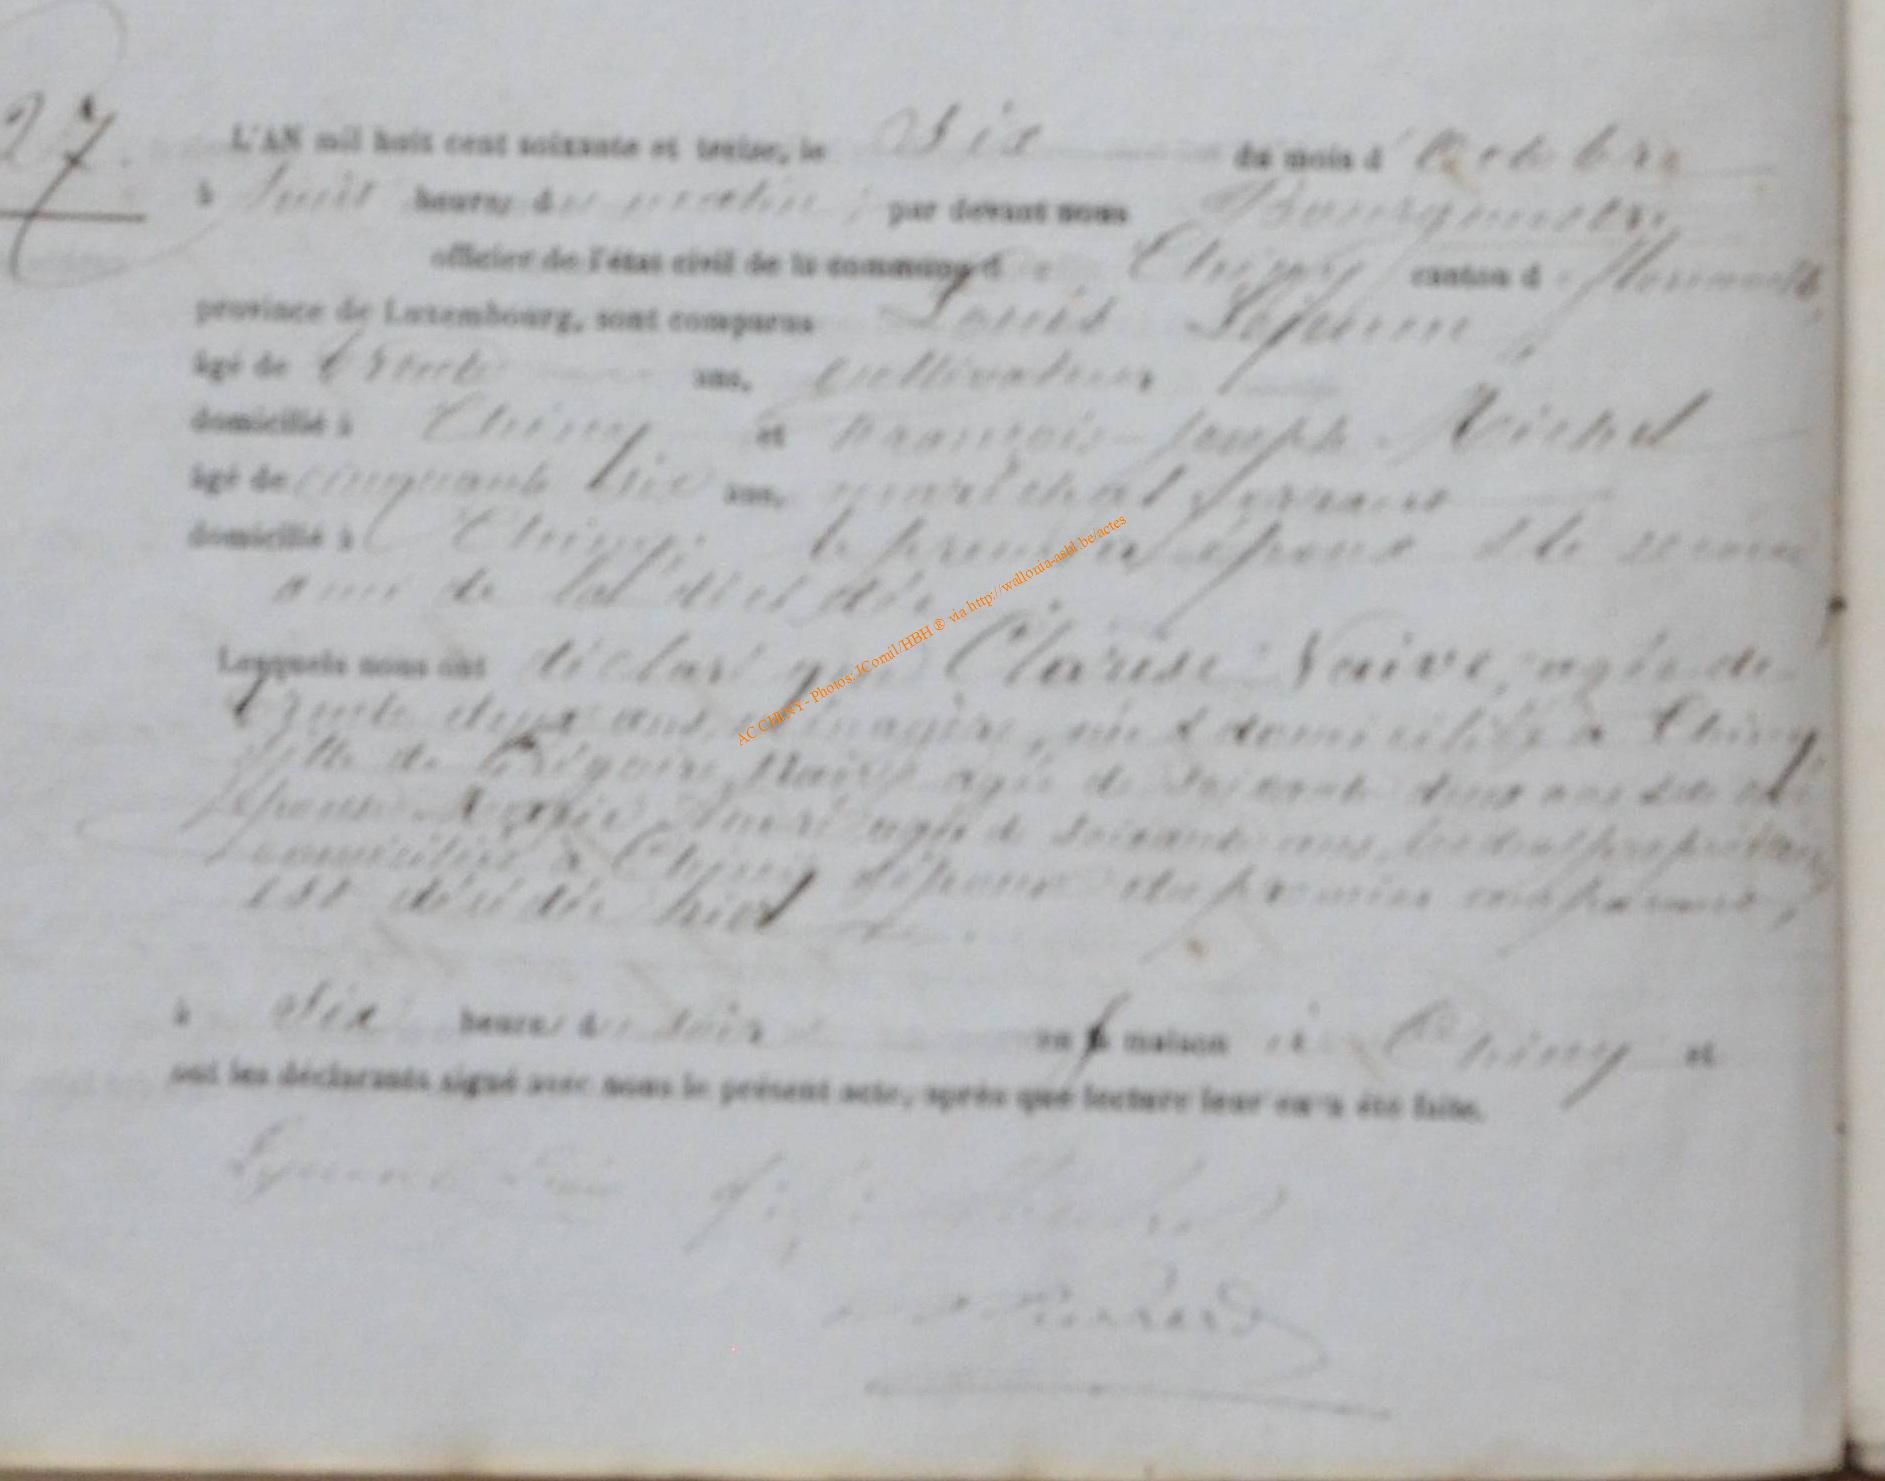 27
L'AN mil huit cent soixante et treize, le Six du mois d'Octobre
à huit heures du matin, par devant nous Bourgmestre
officier de l'état civil de la commune de Chiny canton de Florenville
province de Luxembourg, sont comparus Louis Lejeune,
âgé de trente ans, cultivateur
domicilié à Chiny et François-Joseph Michel
âgé de cinquante six ans, maréchal ferrant
domicilié à Chiny, le premier époux et le second
ami de la décédée
Lesquels nous ont déclaré que Clarise Naive, agée de
trente deux ans, ménagère, née et domiciliée à Chiny
fille de Grégoire Naive agé de soixante deux ans et de
épouse Marie agée de soixante ans, propriétaires
domiciliés à Chiny épouse du premier comparant,
est décédée hier
à Six heures du soir en sa maison à Chiny et
ont les déclarants signé avec nous le présent acte, après que lecture leur en a été faite.
Lejeune Louis
AC CHINY- Photos: JComil/HBH ® via http://wallonia-asbl.be/actes